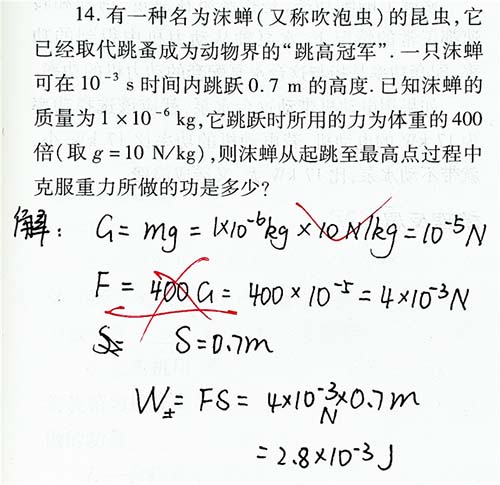 14.有一种名为沫蝉(又称吹泡虫)的昆虫,它
已经取代跳蚤成为动物界的“跳高冠军”.一只沫蝉
可在10⁻³ s时间内跳跃0.7 m的高度.已知沫蝉的
质量为1×10⁻⁶ kg,它跳跃时所用的力为体重的400
倍(取g=10 N/kg),则沫蝉从起跳至最高点过程中
克服重力所做的功是多少?
解: G=mg=1×10⁻⁶kg×10N/kg=10⁻⁵N
F=400G=400×10⁻⁵=4×10⁻³N
S=0.7m
W±=FS=4×10⁻³N×0.7m
=2.8×10⁻³J